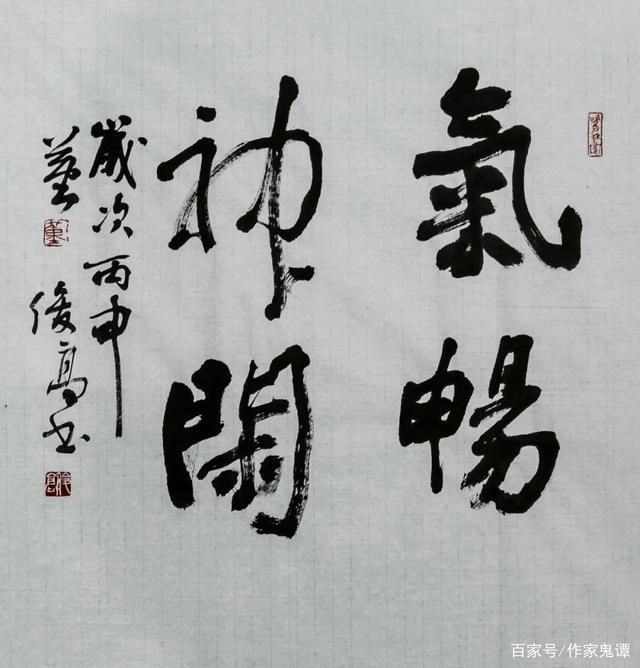 氣暢
神閑
歲次丙申
董俊高书
百家号/作家鬼谭